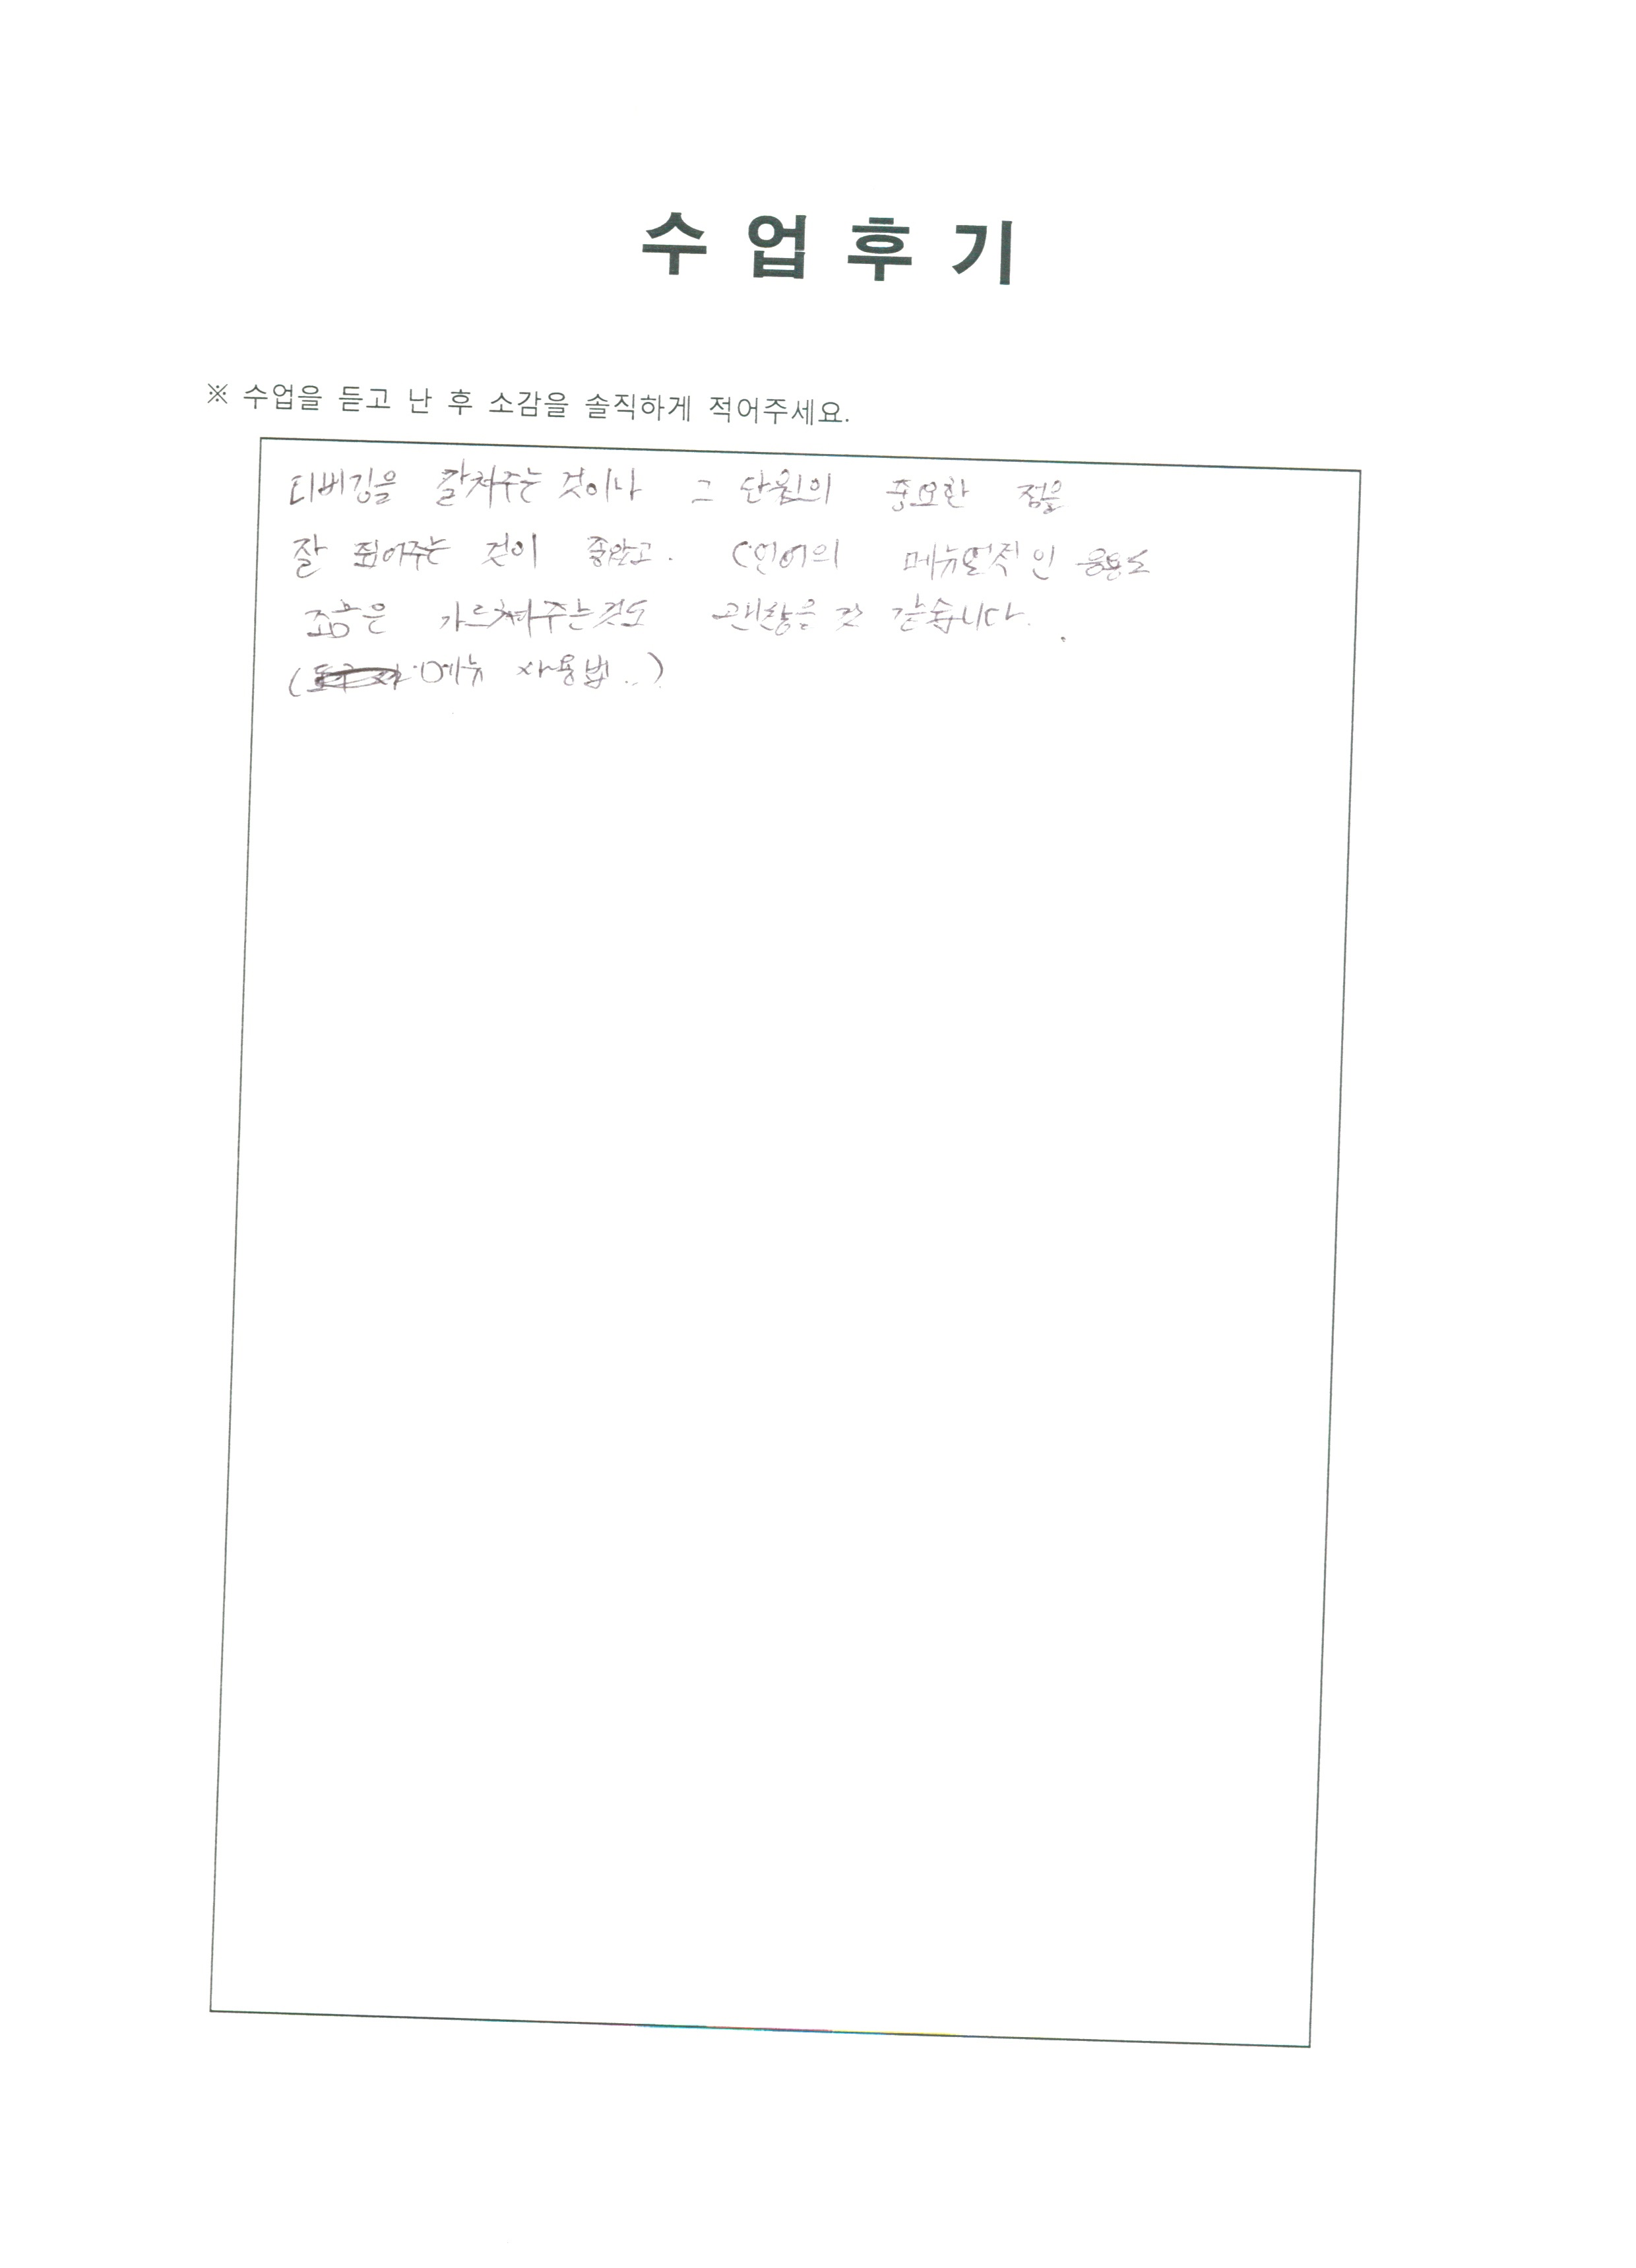 수업후기
※ 수업을 듣고 난 후 소감을 솔직하게 적어주세요.
디버깅을 갈쳐주는 것이나 그 단원의 중요한 점을
잘 짚어주는 것이 좋았고. C언어의 메뉴얼적인 응용도
조금은 가르쳐주는것도 괜찮을 것 같습니다.
( 메뉴 사용법..)